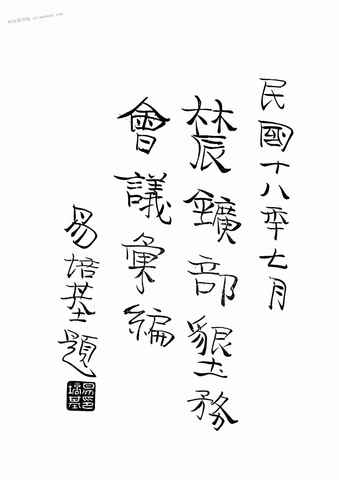 民國十八年七月
農鑛部墾務
會議彙編
易培基題
易培基印